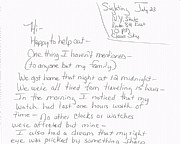 Sighting July 23
N.Y. State
10 PM
Hi-
Happy to help out-
One thing I haven't mentioned-
(to anyone but my family)
We got home that night at 12 midnight-
We were all tired from traveling 12 hours
In the morning, I noticed that my
watch had lost one hours worth of
time- No other clocks or watches
were affected but mine-
I also had a dream that my right
eye was pricked by something